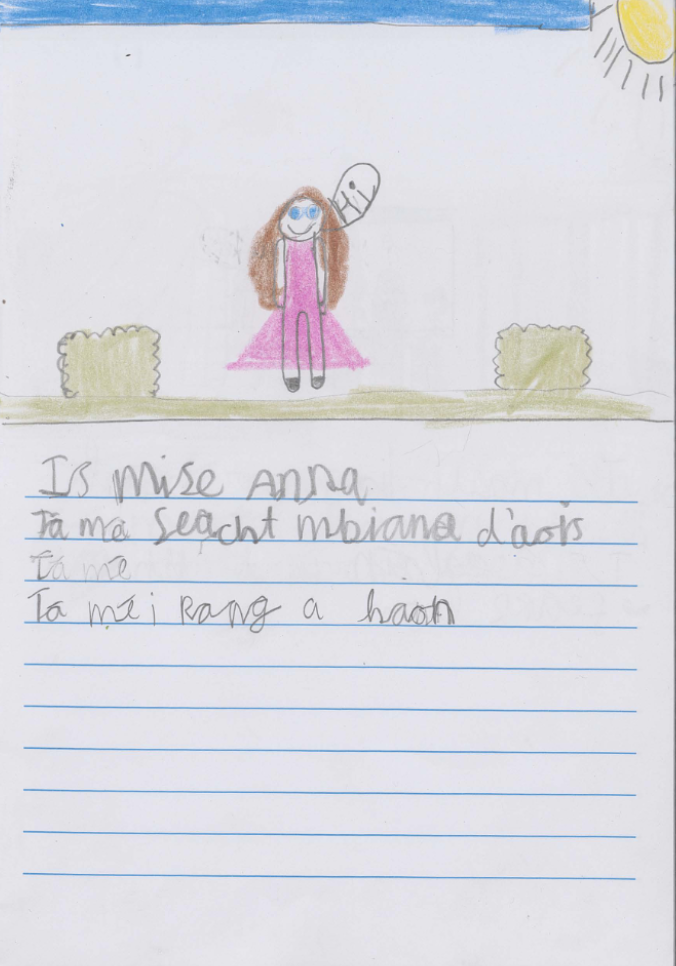 Hi
Is mise Anna
Tá ma seacht mbiana d'aois
Tá mé
Tá mé i Rang a haon